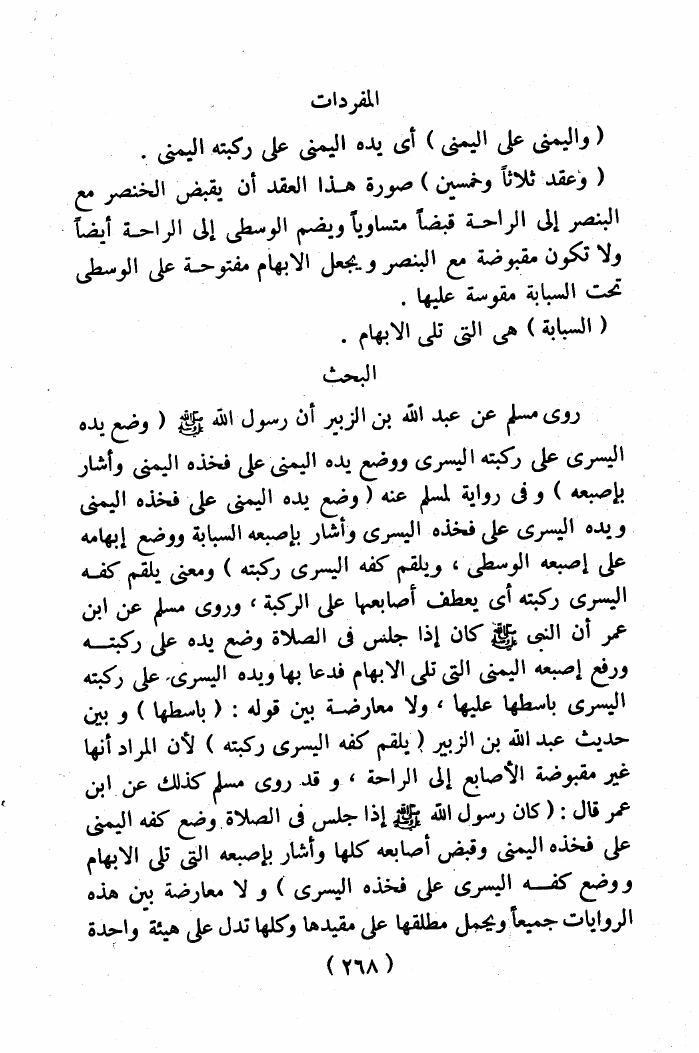 المفردات
( واليمنى على اليمنى ) أى يده اليمنى على ركبته اليمنى .
( وعقد ثلاثاً وخمسين ) صورة هـذا العقد أن يقبض الخنصر مع
البنصر إلى الراحـة قبضاً متساوياً ويضم الوسطى إلى الراحـة أيضاً
ولا تكون مقبوضة مع البنصر ويجعل الابهام مفتوحـة على الوسطى
تحت السبابة مقوسة عليها .
( السبابة ) هى التى تلى الابهام .
البحث
روى مسلم عن عبد الله بن الزبير أن رسول الله ﷺ ( وضع يده
اليسرى على ركبته اليسرى ووضع يده اليمنى على فخذه اليمنى وأشار
بإصبعه ) وفى رواية لمسلم عنه ( وضع يده اليمنى على فخذه اليمنى
ويده اليسرى على فخذه اليسرى وأشار بإصبعه السبابة ووضع إبهامه
على إصبعه الوسطى ، ويلقم كفه اليسرى ركبته ) ومعنى يلقم كفـه
اليسرى ركبته أى يعطف أصابعها على الركبة ، وروى مسلم عن ابن
عمر أن النبى ﷺ كان إذا جلس فى الصلاة وضع يده على ركبتـــه
ورفع إصبعه اليمنى التى تلى الابهام فدعا بها ويده اليسرى على ركبته
اليسرى باسطها عليها ، ولا معارضـة بين قوله : ( باسطها ) وبين
حديث عبد الله بن الزبير ( يلقم كفه اليسرى ركبته ) لأن المراد أنها
غير مقبوضة الأصابع إلى الراحة ، وقد روى مسلم كذلك عن ابن
عمر قال : ( كان رسول الله ﷺ إذا جلس فى الصلاة وضع كفه اليمنى
على فخذه اليمنى وقبض أصابعه كلها وأشار بإصبعه التى تلى الابهام
ووضع كفـــه اليسرى على فخذه اليسرى ) ولا معارضة بين هذه
الروايات جميعاً ويحمل مطلقها على مقيدها وكلها تدل على هيئة واحدة
( ٢٦٨ )